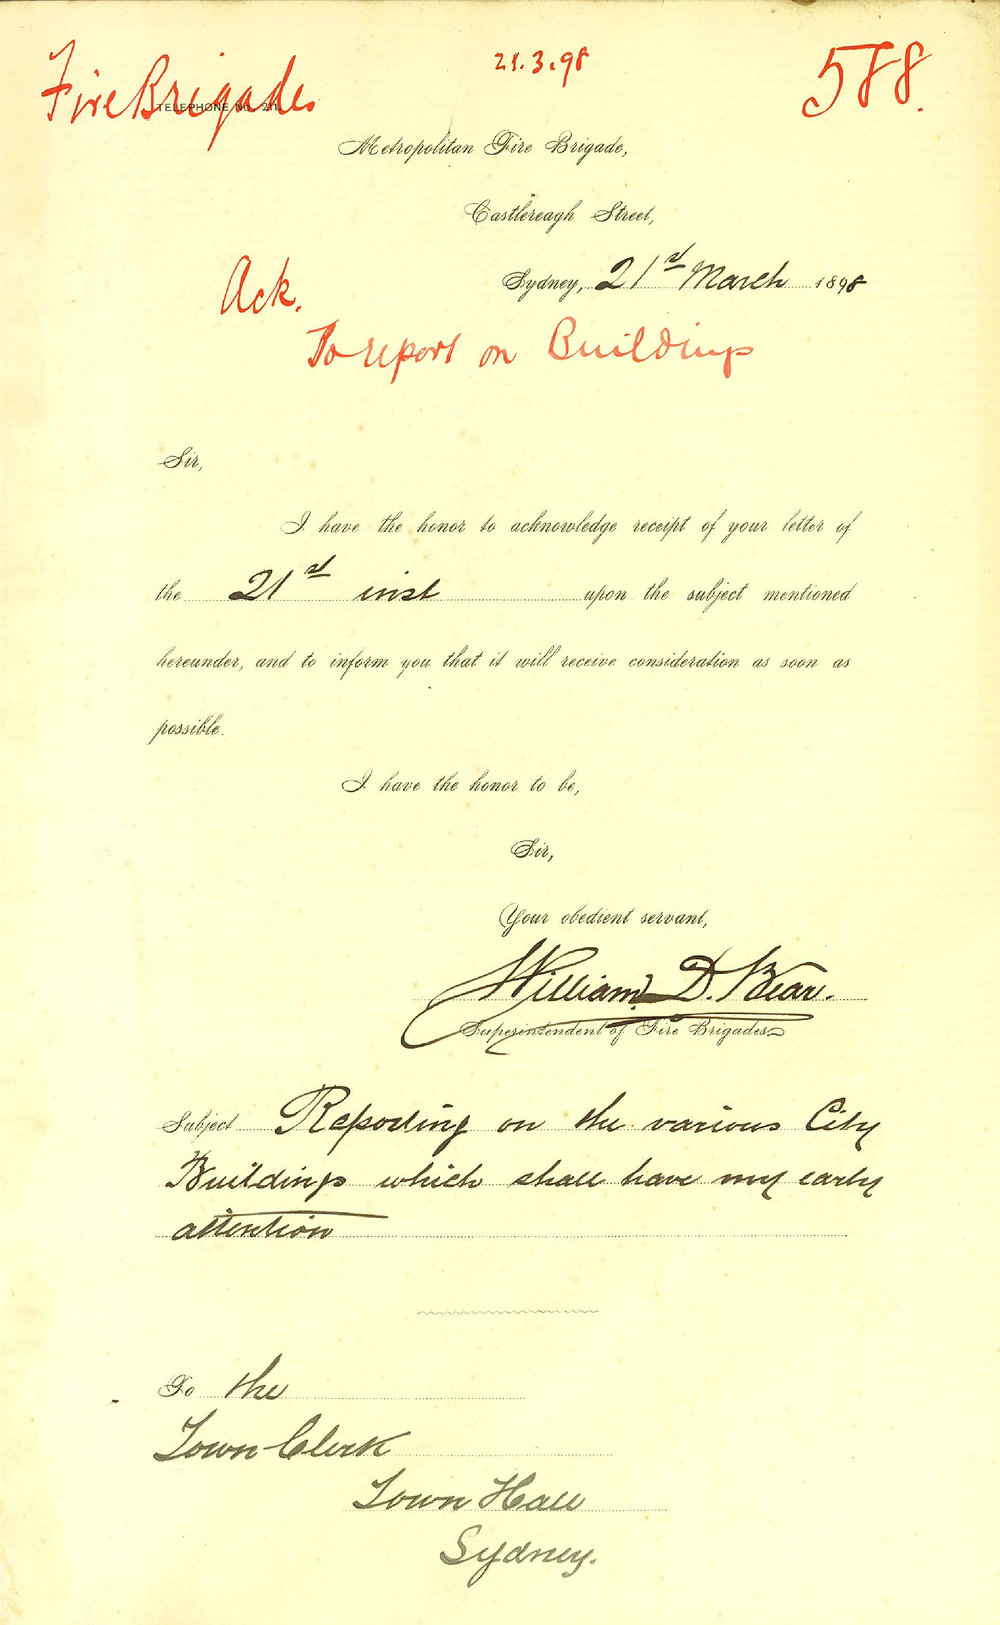 Fire Brigades
21.3.98
588.
TELEPHONE No. 211.
Metropolitan Fire Brigade,
Castlereagh Street,
Sydney, 21st March 1898
Ack.
To report on Buildings
Sir,
I have the honor to acknowledge receipt of your letter of
the 21st inst upon the subject mentioned
hereunder, and to inform you that it will receive consideration as soon as
possible.
I have the honor to be,
Sir,
Your obedient servant,
William D. Bear.
Superintendent of Fire Brigades
Subject Reporting on the various City
Buildings which shall have my early
attention
To the
Town Clerk
Town Hall
Sydney.